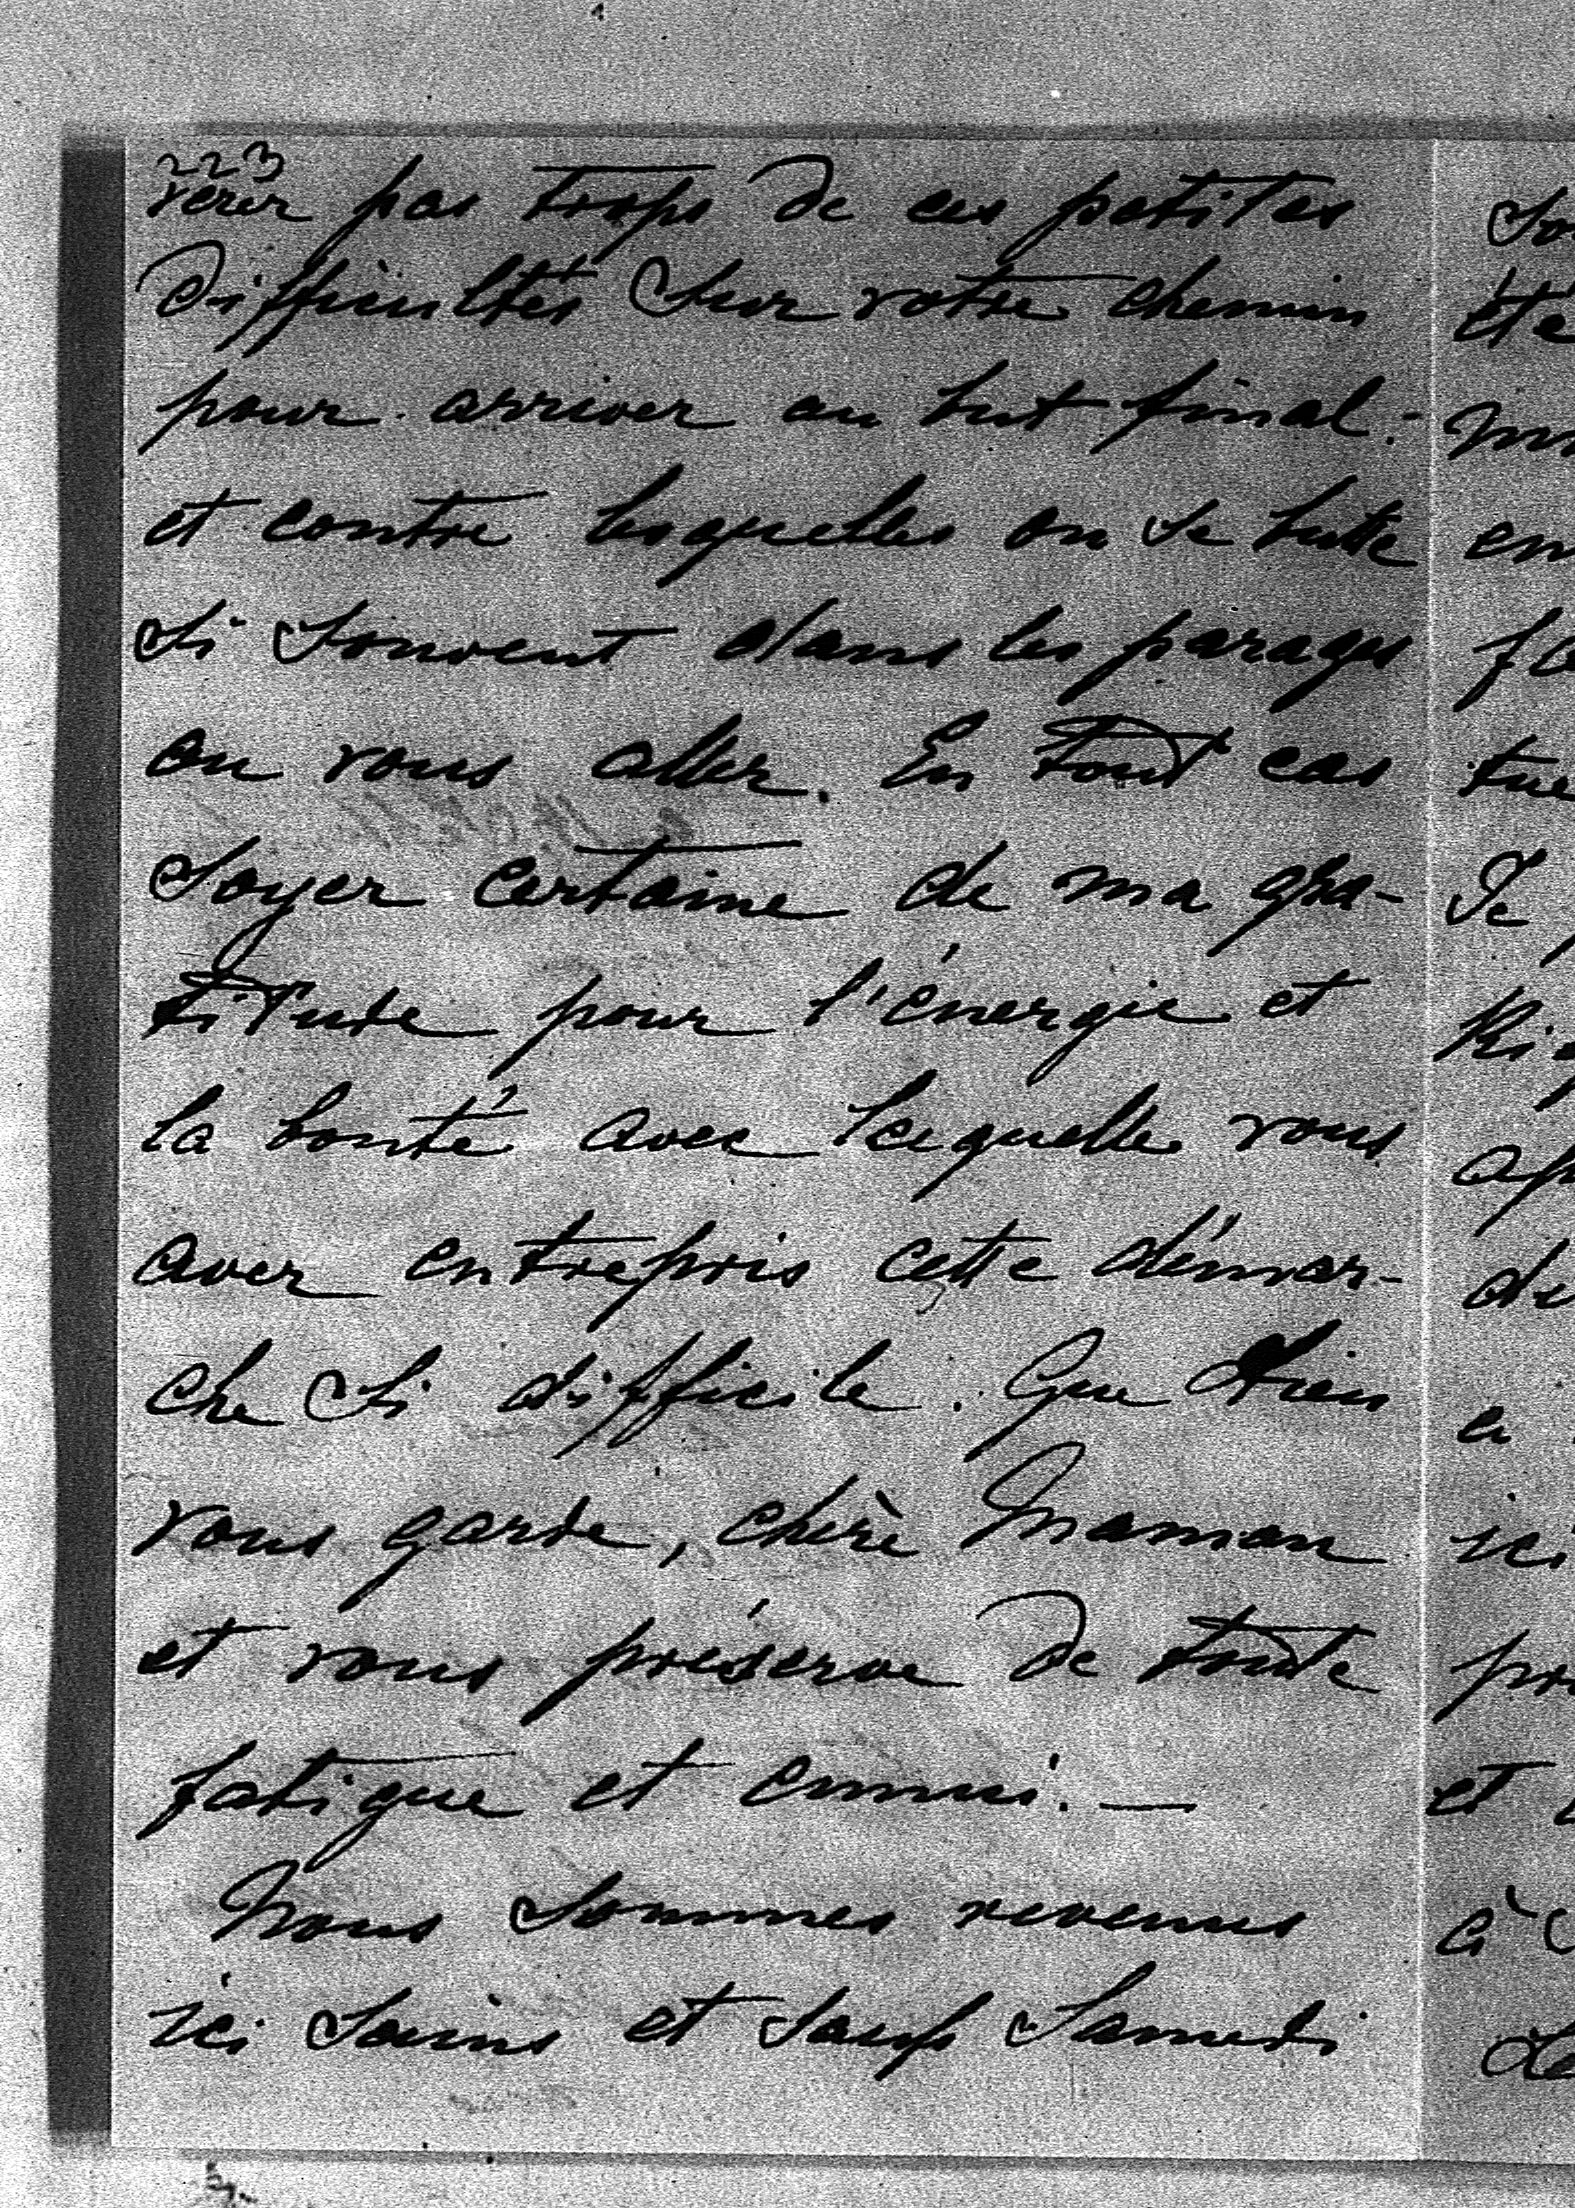 223
verez pas trops de ces petites
difficultés sur votre chemin
pour arriver au but final.-
et contre lesquelles on se butte
si souvent dans les parages
ou vous allez. En tout cas
soyez certaine de ma gra-
titude pour l'énergie et
la bonté avec laquelle vous
avez entrepris cette démar-
che si difficile. Que Dieu
vous garde, chère Maman
et vous préserve de toute
fatigue et ennui. —
Nous sommes revenus
ici sains et saufs Samedi